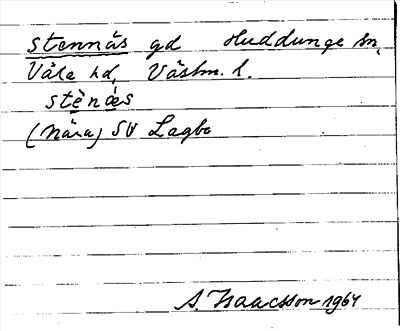 Stennäs gd Huddunge sn,
Våla hd, Västm. l.
stè̱nä̱s
(Nära) SV Lagbo
A. Isaacsson 1964